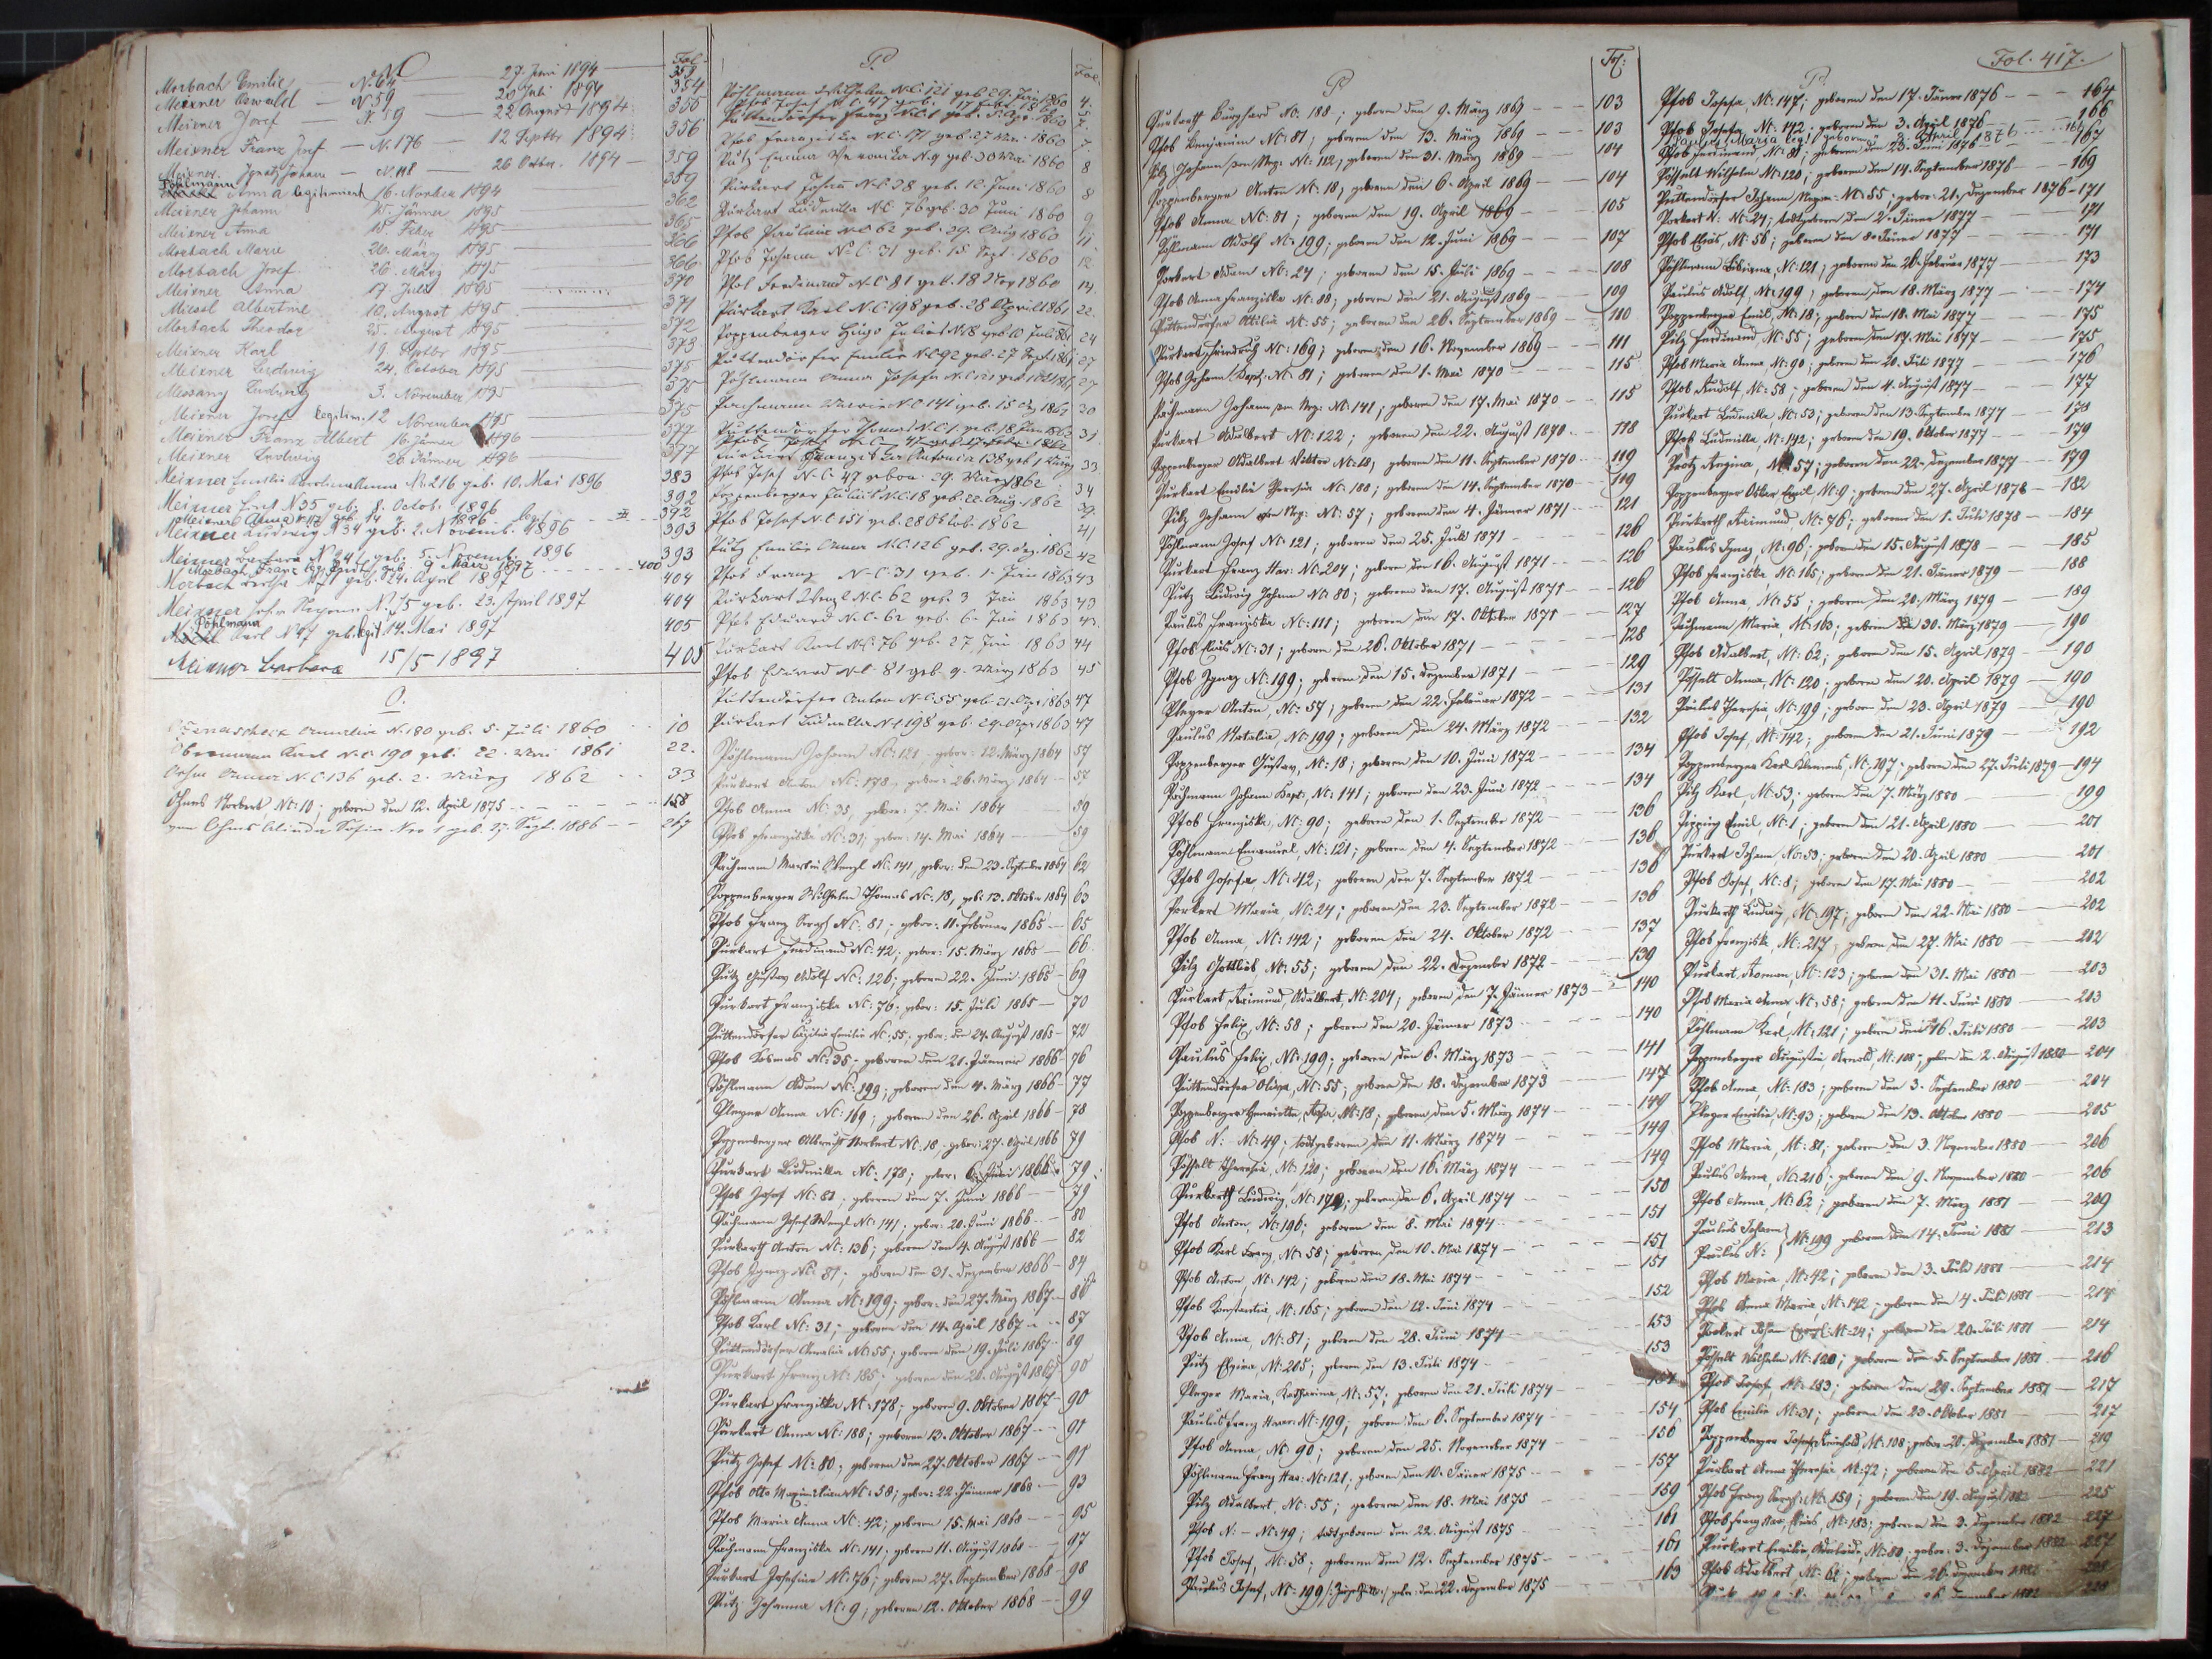 M
Fol.
Morbach Emilie — N. 64 — 27. Juni 1894 — 353
Meixner Oswald — N 59 — 20 Juli 1894 — 354
Meixner Josef — N. 59 — 22 August 1894 — 355
Meixner Franz Josef — N. 176 — 12 Septbr 1894 — 356
Meixner Ignatz Johann — N. 118 — 26 Oktbr. 1894 — 359
Pöhlmann Anna legitimirt 16. November 1894 — 359
Meixner Johann 25. Jänner 1895 — 362
Meixner Anna 15. Feber 1895 — 365
Morbach Marie 20. März 1895 — 366
Morbach Josef 26. März 1895 — 366
Meixner Anna 17. Juli 1895 — 370
Miessl Albertine 10. August 1895 — 371
Morbach Theodor 25. August 1895 — 372
Meixner Karl 19. Septbr 1895 — 373
Meixner Ludwig 24. October 1895 — 375
Messany Ludwig 3. November 1895 — 375
Meixner Josef legitim. 12 November 1895 — 375
Meixner Franz Albert 16. Jänner 1896 — 377
Meixner Ludwig 26 Jänner 1896 — 377
Meixner Emilie Karolina Anna N. 216 geb. 10. Mai 1896 383
Meixner Ernst N 35 geb. 8. Octob. 1896 392
Meixner Ludwig N 34 geb. 2. Novemb. 1896 393
Meixner Barbara N 241 geb. 5. Novemb. 1896 393
Morbach Franz legitimirt geb. 9. März 1897 400
Morbach Theresia N 71 geb. 24. April 1897 404
Meixner N. 75 geb. 23. April 1897 404
Pöhlmann Karl N 47 geb. legit 14. Mai 1897 405
Meixner Barbara 15/5 1897 405
O.
Amalia N. 180 geb. 5. Juli 1860 10
Obermann Karl N.C. 190 geb. 22. Mai 1861 22.
Oehm Anna N.C. 136 geb. 2. März 1862 33
Norbert Nc: 10; geboren den 12. April 1875 — 158
P.
Fol.
Pöhlmann Wilhelm N.C. 121 geb. 29. 1860 4.
Pfob Franziska N.C. 171 geb. 27 Mai 1860 7.
Putz Emma Veronika N. 9 geb. 30 Mai 1860 8
Purkart Johann N.C. 38 geb. 12. Juni 1860 8
Purkart Ludmilla N.C. 76 geb. 30 Juni 1860 9
Pfob Pauline N.C 62 geb. 29. Aug 1860 11
Pfob Johann N.C. 31 geb. 15. Sept. 1860 12
Pfob Ferdinand N.C 81 geb. 18 Nov 1860 14.
Purkart Karl N.C 198 geb. 28 April 1861 22.
Poppenberger Hugo Julius N. 18 geb. 10 Juli 1861 24
Puttendörfer Emilie N.C 92 geb. 27 Sept. 1861 27
Pöhlmann Anna Josefa N.C. 121 27
Pachmann Marie N.C 141 geb. 15 Dez 1861 30
Puttendorfer Thomas N.C 1. geb. 18 Jan 1862 31
Purkart Franziska Antonia 138 geb 1 März 33
Pfob Josef N.C. 47 geboren 29. März 1862 34
Poppenberger Julius N.C. 18 geb. 22. Aug. 1862 39.
Pfob Josef N.C 151 geb. 28 Oktob. 1862 41
Putz Emilie Anna N.C. 126 geb. 29. Dez. 1862 42
Pfob Franz N-C. 31 geb. 1. Jän 1863 43
Purkart Wenzl N.C. 62 geb. 3 Jän 1863 43
Pfob Eduard N.C. 62 geb. 6. Jän 1863 43.
Purkart Karl N.C. 76 geb. 27 Jän 1863 44
Pfob Eduard N.C. 81 geb. 9. März 1863 45
Puttendörfer Anton N.C. 55 geb. 21. Apr. 1863 47
Purkart Ludmilla N.C. 198 geb. 29. Apr 1863 47
Pöhlmann Johann Nc: 121 gebor: 12. März 1864 57
Purkart Anton Nc: 178, gebor: 26. März 1864 — 57
Pfob Anna Nc: 35, gebor: 7. Mai 1864 59
Pfob Franziska Nc: 31; gebor: 14. Mai 1864 — 59
Pachmann Martin Wenzl Nc: 141, gebor: den 23. September 1864 62
Poppenberger Wilhelm Thomas Nc: 18, geb: 13. Oktober 1864 63
Pfob Franz Nc: 81; gebor: 11. Februar 1865 — 65
Purkart Ferdinand Nc: 42; gebor: 15. März 1865 — 66
Putz Gustav Adolf Nc: 126; geboren 22. Juni 1865 — 69
Purkart Franziska Nc: 76; gebor: 15. Juli 1865 — 70
Puttendörfer Emilia Nc: 55; gebor: den 24. August 1865 — 72
Pfob Kosmas Nc: 35; geboren den 21. Jänner 1866 76
Pöhlmann Adam Nc: 199; geboren den 4. März 1866 — 77
Pleyer Anna Nc: 169; geboren den 26. April 1866 — 78
Poppenberger Albrecht Norbert Nc. 18, gebor: 27. April 1866 79
Purkart Ludmilla Nc: 178; gebor: 6. Juni 1866 79
Pfob Josef Nc: 81; geboren den 7. Juni 1866 — 79
Pachmann Josef Wenzl Nc: 141; gebor: 20. Juni 1866 — 80
Purkarth Anton Nc: 136; geboren den 4. August 1866 — 82
Pfob Ignaz Nc: 81; geboren den 31. Dezember 1866 — 84
Pöhlmann Anna Nc: 199; gebor: den 27. März 1867 — 86
Pfob Karl Nc: 31; geboren den 14. April 1867 — 87
Puttendörfer Amalia Nc: 55; geboren den 19. Juli 1867 — 89
Purkart Franz Nc: 185; geboren den 26. August 1867 90
Purkart Franziska Nc: 178; geboren 9. Oktober 1867 — 90
Purkart Anna Nc: 188; geboren 13. Oktober 1867 — 91
Putz Josef Nc: 80; geboren den 27. Oktober 1867 — 91
Pfob Otto Maximilian Nc: 58; gebor: 22. Jänner 1868 — 93
Pfob Maria Anna Nc: 42; geboren 15. Mai 1868 — 95
Pachmann Franziska Nc: 141; geboren 11. August 1868 — 97
Purkart Josefine Nc: 76; geboren 27. September 1868 — 98
Putz Johanna Nc: 9; geboren 12. Oktober 1868 — 99
P
Fol:
Purkarth Burghard Nc: 188; geboren den 9. März 1869 — 103
Pfob Benjamin Nc: 81; geboren den 13. März 1869 — 103
Pilz Johann Nep: Nc: 112; geboren den 31. März 1869 — 104
Poppenberger Anton Nc: 18; geboren den 6. April 1869 — 104
Pfob Anna Nc: 81; geboren den 19. April 1869 — 105
Pöhlmann Adolf Nc: 199; geboren den 12. Juni 1869 — 107
Porkert Adam Nc: 24; geboren den 15. Juli 1869 — 108
Pfob Anna Franziska Nc: 98; geboren den 21. August 1869 — 109
Puttendörfer Otilia Nc: 55; geboren den 26. September 1869 — 110
Purkart Friedrich Nc: 169; geboren den 16. November 1869 — 111
Pfob Johann Bapt: Nc: 81; geboren den 1. Mai 1870 — 115
Pachmann Johann Nep: Nc: 141; geboren den 17. Mai 1870 — 115
Purkart Adalbert Nc: 122; geboren den 22. August 1870 — 118
Poppenberger Adalbert Viktor Nc: 18; geboren den 11. September 1870 — 119
Purkart Emilia Theresia Nc: 188; geboren den 14. September 1870 — 119
Pilz Johann Nep: Nc: 57; geboren den 4. Jänner 1871 — 121
Pöhlmann Josef Nc: 121; geboren den 25. Juli 1871 — 126
Purkart Franz Xav: Nc: 204; geboren den 16. August 1871 — 126
Putz Ludwig Johann Nc: 80; geboren den 17. August 1871 — 126
Paulus Franziska Nc: 111; geboren den 17. Oktober 1871 — 127
Pfob Alois Nc: 31; geboren den 26. Oktober 1871 — 128
Pfob Ignaz Nc: 199; geboren den 15. Dezember 1871 — 129
Pleyer Anton, Nc: 57; geboren den 22. Februar 1872 — 131
Paulus Natalia, Nc: 199; geboren den 24. März 1872 — 132
Poppenberger Gustav, Nc: 18; geboren den 10. Juni 1872 — 134
Pachmann Johann Bapt:, Nc: 141; geboren den 23. Juni 1872 — 134
Pfob Franziska, Nc: 90; geboren den 1. September 1872 — 136
Pöhlmann Emanuel, Nc: 121; geboren den 4. September 1872 — 136
Pfob Josefa, Nc: 42; geboren den 7. September 1872 — 136
Porkert Maria, Nc: 24; geboren den 23. September 1872 — 136
Pfob Anna, Nc: 142; geboren den 24. Oktober 1872 — 137
Pilz Gottlieb, Nc: 55; geboren den 22. Dezember 1872 — 139
Purkart Raimund, Adalbert, Nc: 204; geboren den 7. Jänner 1873 — 140
Pfob Felix, Nc: 58; geboren den 20. Jänner 1873 — 140
Paulus Felix, Nc: 199; geboren den 6. März 1873 — 141
Puttendörfer Oliva, Nc: 55; geboren den 18. Dezember 1873 — 147
Poppenberger Henriette, Nc: 18; geboren den 5. März 1874 — 149
Pfob N: Nc: 49; todtgeboren den 11. März 1874 — 149
Pösselt Theresia, Nc: 120; geboren den 16. März 1874 — 149
Purkarth Ludwig, geboren den 6. April 1874 — 150
Pfob Anton, Nc: 196; geboren den 8. Mai 1874 — 151
Pfob Karl Franz, Nc: 58; geboren den 10. Mai 1874 — 151
Pfob Anton, Nc: 142; geboren den 18. Mai 1874 — 151
Pfob Konstantin, Nc: 165; geboren den 12. Juni 1874 — 152
Pfob Anna, Nc: 81; geboren den 28. Juni 1874 — 153
Putz Nc: 205; geboren den 13. Juli 1874 — 153
Pleyer Maria, Katharina, Nc: 57; geboren den 21. Juli 1874
Paulus Franz Xaver: Nc: 199; geboren den 6. September 1874 — 154
Pfob Anna, Nc: 90; geboren den 25. November 1874 — 156
Pöhlmann Franz Xav: Nc: 121; geboren den 10. Jäner 1875 — 157
Pilz Adalbert, Nc: 55; geboren den 18. Mai 1875 — 159
Pfob N: — Nc: 49; todtgeboren den 22. August 1875 — 161
Pfob Josef, Nc: 58; geboren den 12. September 1875 — 161
Paulus Josef, Nc: 199 geb: den 22. Dezember 1875 — 163
P.
Fol. 417.
Pfob Josefa, Nc: 147; geboren den 17. Jänner 1876 — 164
Pfob Josefa, Nc: 142; geboren den 3. April 1876 — 166
Paulus Maria legi. geboren 3. April 1876
Pfob Ferdinand, Nc: 81; geboren den 23. Juni 1876 — 167
Pösselt Wilhelm Nc: 120; geboren den 14. September 1876 — 169
Puttendörfer Johann Nepom: Nc: 55; gebor: 21. Dezember 1876 — 171
Porkert N: Nc: 24; todtgeboren den 2. Jäner 1877 — 171
Pfob Alois, Nc: 56; geboren den 8. Jäner 1877 — 171
Pöhlmann Bibiana, Nc: 121; geboren den 26. Februar 1877 — 173
Paulus Adolf, Nc: 199; geboren den 18. März 1877 — 174
Poppenberger Emil, Nc: 18; geboren den 18. Mai 1877 — 175
Pilz Ferdinand, Nc: 55; geboren den 17. Mai 1877 — 175
Pfob Maria Anna, Nc: 90; geboren den 20. Juli 1877 — 176
Pfob Rudolf, Nc: 58; geboren den 4. August 1877 — 177
Purkart Ludmilla, Nc: 53; geboren den 13. September 1877 — 178
Pfob Ludmilla, Nc: 142; geboren den 19. Oktober 1877 — 179
Regina, Nc: 57; geboren den 22. Dezember 1877 — 179
Poppenberger Oskar Emil, Nc: 9; geboren den 27. April 1878 — 182
Purkarth Raimund, Nc: 76; geboren den 1. Juli 1878 — 184
Paulus Ignaz, Nc: 96; geboren den 15. August 1878 — 185
Pfob Franziska, Nc: 165; geboren den 21. Jäner 1879 — 188
Pfob Anna, Nc: 55; geboren den 20. März 1879 — 189
Pachmann Maria, Nc: 163; geboren den 30. März 1879 — 190
Pfob Adalbert, Nc: 62; geboren den 15. April 1879 — 190
Pösselt Anna, Nc: 120; geboren den 20. April 1879 — 190
Paulus Theresia, Nc: 199; geboren den 23. April 1879 — 190
Pfob Josef, Nc: 142; geboren den 21. Juni 1879 — 192
Poppenberger Karl Klemens, Nc: 197; geboren den 27. Juli 1879 — 194
Pilz Karl, Nc: 53; geboren den 7. März 1880 — 199
Emil, Nc: 1; geboren den 21. April 1880 — 201
Purkart Johann, Nc: 53; geboren den 20. April 1880 — 201
Pfob Josef, Nc: 8; geboren den 17. Mai 1880 — 202
Purkarth Ludwig, Nc: 197; geboren den 22. Mai 1880 — 202
Pfob Franziska, Nc: 217; geboren den 27. Mai 1880 — 202
Purkart, Roman, Nc: 123; geboren den 31. Mai 1880 — 203
Pfob Maria Anna, Nc: 58; geboren den 11. Juni 1880 — 203
Pöhlmann Karl, Nc: 121; geboren den 16. Juli 1880 — 203
Poppenberger Augustin, Arnold, Nc: 108; geboren den 2. August 1880 — 204
Pfob Anna, Nc: 183; geboren den 3. September 1880 — 204
Pleyer Emilia, Nc: 93; geboren den 13. Oktober 1880 — 205
Pfob Maria, Nc: 81; geboren den 3. November 1880 — 206
Paulus Anna, Nc: 216; geboren den 9. November 1880 — 206
Pfob Anna, Nc: 62; geboren den 7. März 1881 — 209
Paulus Johann
Paulus N: } Nc: 199 geboren den 14. Juni 1881 — 213
Pfob Maria, Nc: 42; geboren den 3. Juli 1881 — 214
Pfob Anna Maria, Nc: 142; geboren den 4. Juli 1881 — 214
Porkert Johann Nc: 24; geboren den 20. Juli 1881 — 214
Pösselt Wilhelm Nc: 120; geboren den 5. September 1881 — 216
Pfob Josef, Nc: 183; geboren den 29. September 1881 — 217
Pfob Emilie Nc: 31; geboren den 23. Oktober 1881 — 217
Poppenberger Josef, Reinhold, Nc: 108; gebor: 20. Dezember 1881 — 219
Purkart Anna Theresia Nc: 72; geboren den 5. April 1882 — 221
Pfob Franz Nc: 159; geboren den 19. August 225
Pfob Franz Xav. Alois, Nc: 183; geboren den 3. Dezember 1882 — 227
Purkart Emilie, Adelheid, Nc: 80; gebor: 3. Dezember 1882 — 227
Pfob Adalbert, Nc: 62; geboren den 26. Dezember 1882